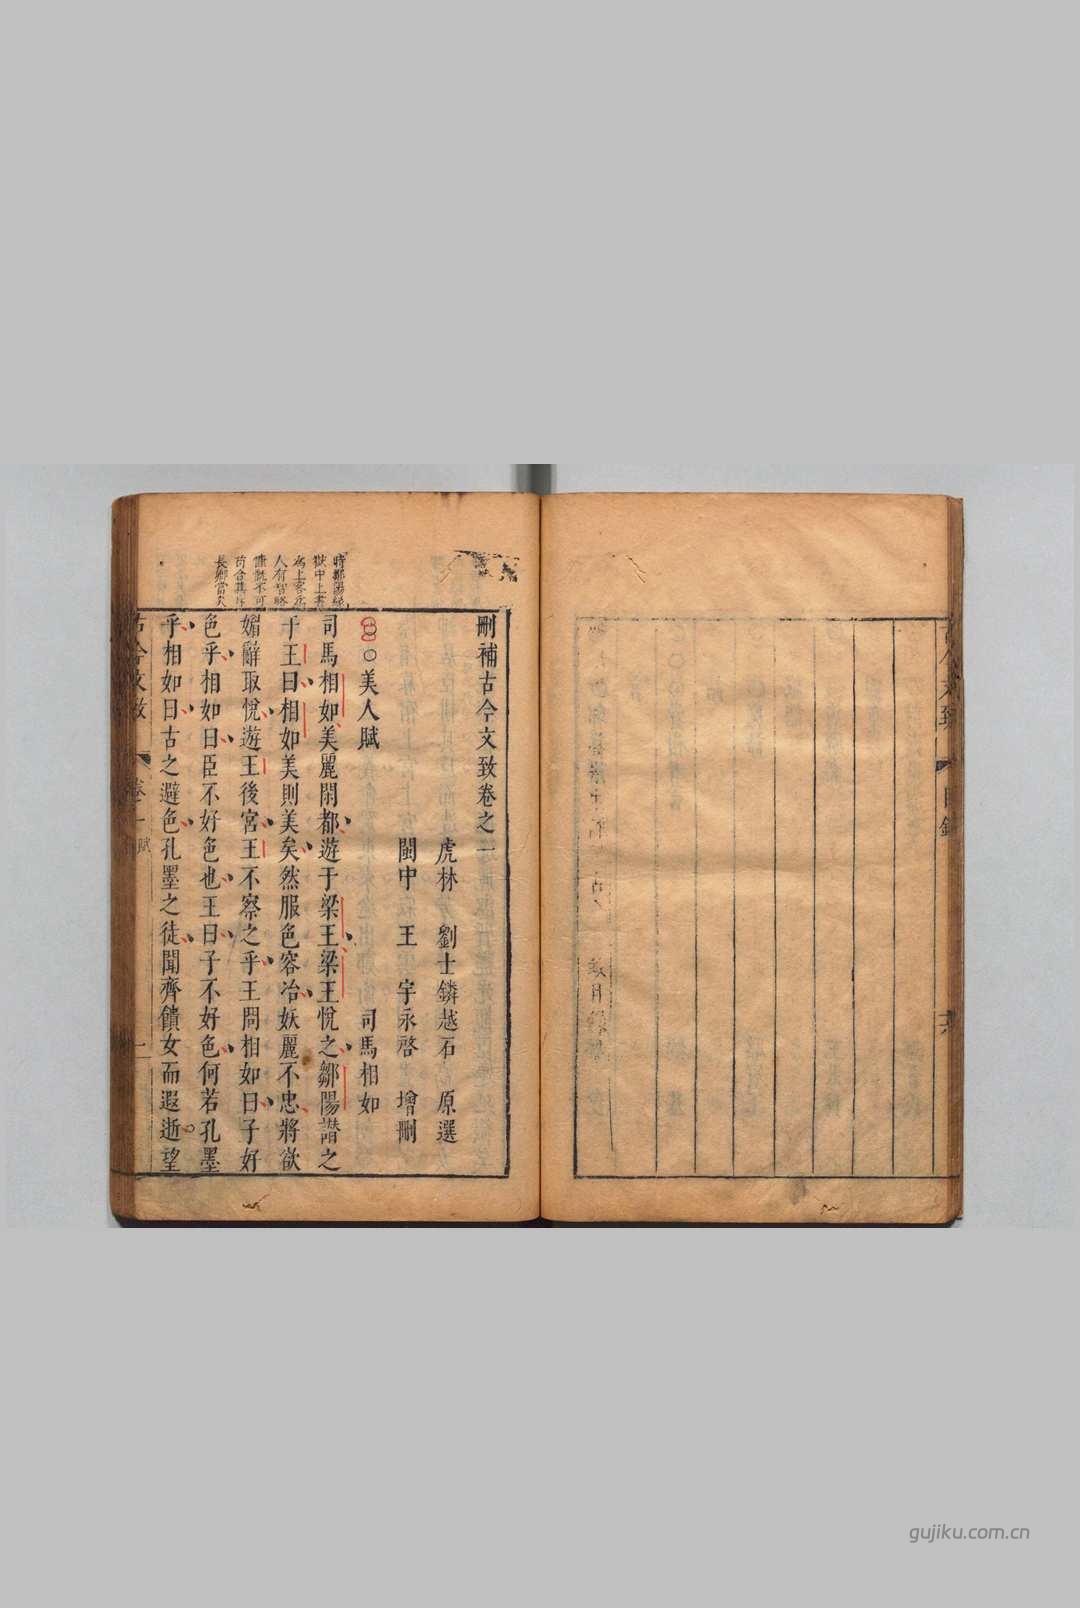 刪補古今文致卷之一
虎林 劉士鏻越石 原選
閩中 王宇永啓 增刪
○○美人賦 司馬相如
司馬相如美麗閑都遊于梁王梁王悅之鄒陽譖之
于王曰相如美則美矣然服色容冶妖麗不忠將欲
媚辭取悅遊王後宮王不察之乎王問相如曰子好
色乎相如曰臣不好色也王曰子不好色何若孔墨
乎相如曰古之避色孔墨之徒聞齊饋女而遐逝望
獄中上書
為上客
人有智略
慷慨不可
苟合其
長卿當
古今文致 卷一 賦 一
目錄
gujiku.com.cn